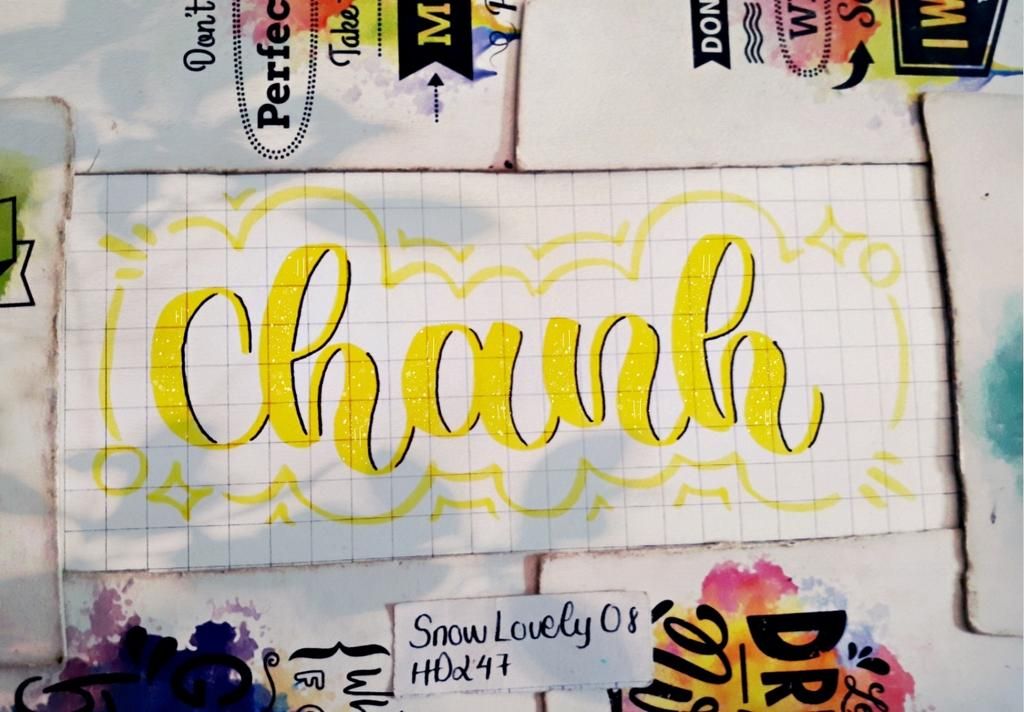 Don't
Perfec
Take
M
DON
W
IW
Chanh
Snow Lovely 08
HD247
G
WE
DR